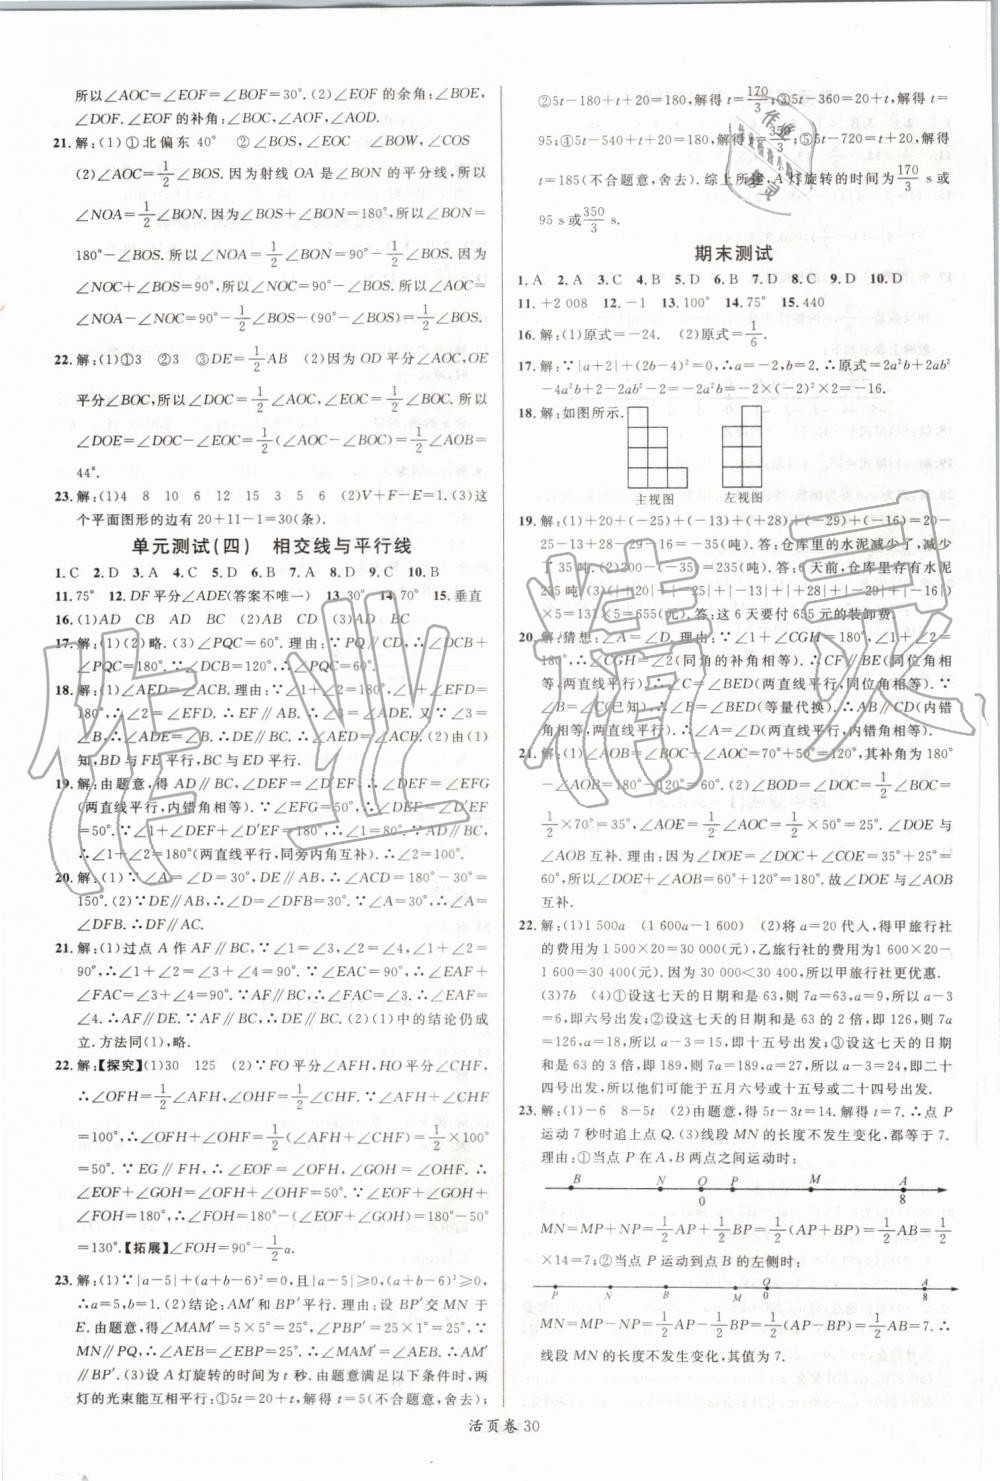 所以∠AOC=∠EOF=∠BOF=30°.(2)∠EOF的余角:∠BOE,
∠DOF.∠EOF的补角:∠AOF,∠AOD.
21.解:(1)①北偏东 40° ②∠BOE,∠BOW,∠COS
(2)∠AOC=1/2∠BOS.因为射线OA是∠BON的平分线,所以
∠NOA=1/2∠BON.因为∠BOS+∠BON=180°,所以∠BON=
180°-∠BOS.所以∠NOA=1/2∠BON=90°-1/2∠BOS.因为
∠NOC+∠BOS=90°,所以∠NOC=90°-∠BOS.所以∠AOC=
∠NOA-∠NOC=90°-1/2∠BOS-(90°-∠BOS)=1/2∠BOS.
22.解:(1)①3 ②3 ③DE=1/2AB (2)因为OD平分∠AOC,OE
平分∠BOC,所以∠DOC=1/2∠AOC,∠EOC=1/2∠BOC.所以
∠DOE=∠DOC-∠EOC=1/2(∠AOC-∠BOC)=1/2∠AOB=
44°.
23.解:(1)4 8 10 6 12 15 3 5 6 (2)V+F-E=1.(3)这
个平面图形的边有20+11-1=30(条).
单元测试(四) 相交线与平行线
1.C 2.D 3.A 4.C 5.D 6.B 7.A 8.D 9.C 10.B
11.75° 12.DF平分∠ADE(答案不唯一) 13.30° 14.70° 15.垂直
16.(1)AD CB AD BC (2)AB CD (3)AD BC
17.解:(1)(2)略.(3)∠PQC=60°.理由:∵PQ∥CD,∴∠DCB+
∠PQC=180°.∵∠DCB=120°,∴∠PQC=60°.
18.解:(1)∠AED=∠ACB.理由:∵∠1+∠2=180°,∠1+∠EFD=
180°,∴∠2=∠EFD.∴EF∥AB.∴∠3=∠ADE.又∵∠3=
∠B,∴∠ADE=∠B.∴DE∥BC.∴∠AED=∠ACB.(2)由(1)
知,BD与FE平行,BC与ED平行.
19.解:由题意,得AD∥BC,∠DEF=∠D′EF,∴∠DEF=∠EFG
(两直线平行,内错角相等).∵∠EFG=50°,∴∠DEF=∠D′EF
=50°.∵∠1+∠DEF+∠D′EF=180°,∴∠1=80°.∵AD∥BC,
∴∠1+∠2=180°(两直线平行,同旁内角互补).∴∠2=100°.
20.解:(1)∵∠A=∠D=30°,DE∥AB,∴∠ACD=180°-30°=
150°.(2)∵DE∥AB,∴∠D=∠DFB=30°.∵∠A=30°,∴∠A=
∠DFB.∴DF∥AC.
21.解:(1)过点A作AF∥BC,∵∠1=∠3,∠2=∠4,∠1+∠2=
90°,∴∠1+∠2=∠3+∠4=90°.∵∠EAC=90°,∴∠EAF+
∠FAC=∠3+∠4=90°.∵AF∥BC,∴∠FAC=∠3.∴∠EAF=
∠4.∴AF∥DE.∵AF∥BC,∴DE∥BC.(2)(1)中的结论仍成
立.方法同(1),略.
22.解:【探究】(1)30 125 (2)∵FO平分∠AFH,HO平分∠CHF,
∴∠OFH=1/2∠AFH,∠OHF=1/2∠CHF.∵∠AFH+∠CHF
=100°,∴∠OFH+∠OHF=1/2(∠AFH+∠CHF)=1/2×100°
=50°.∵EG∥FH,∴∠EOF=∠OFH,∠GOH=∠OHF.∴
∠EOF+∠GOH=∠OFH+∠OHF=50°.∵∠EOF+∠GOH+
∠FOH=180°,∴∠FOH=180°-(∠EOF+∠GOH)=180°-50°
=130°.【拓展】∠FOH=90°-1/2α.
23.解:(1)∵|a-5|+(a+b-6)²=0,且|a-5|≥0,(a+b-6)²≥0,
∴a=5,b=1.(2)结论:AM′和BP′平行.理由:设BP′交MN于
E.由题意,得∠MAM′=5×5°=25°,∠PBP′=25×1°=25°.∵
MN∥PQ,∴∠AEB=∠EBP=25°.∴∠MAM′=∠AEB.∴AM′
∥BP′.(3)设A灯旋转的时间为t秒.由题意满足以下条件时,两
灯的光束能互相平行:①5t=20+t,解得t=5(不合题意,舍去);
②5t-180+t+20=180,解得t=170/3;③5t-360=20+t,解得t=
95;④5t-540+t+20=180,解得t=350/3;⑤5t-720=t+20,解得
t=185(不合题意,舍去).综上所述,A灯旋转的时间为170/3 s或
95 s或350/3 s.
期末测试
1.A 2.A 3.C 4.B 5.D 6.B 7.D 8.C 9.D 10.D
11.+2 008 12.-1 13.100° 14.75° 15.440
16.解:(1)原式=-24. (2)原式=1/6.
17.解:∵|a+2|+(2b-4)²=0,∴a=-2,b=2.∴原式=2a²b+2ab²
-4a²b+2-2ab²-2=-2a²b=-2×(-2)²×2=-16.
18.解:如图所示.
主视图 左视图
19.解:(1)+20+(-25)+(-13)+(+28)+(-29)+(-16)=20-
25-13+28-29-16=-35(吨).答:仓库里的水泥减少了,减少
了35吨.(2)200-(-35)=235(吨).答:仓库里6天前,仓库里存有水泥
235吨.(3)(|+20|+|-25|+|-13|+|+28|+|-29|+|-16|)
×5=131×5=655(元).答:这6天要付655元的装卸费.
20.解:猜想:∠A=∠D.理由:∵∠1+∠CGH=180°,∠1+∠2=
180°,∴∠CGH=∠2(同角的补角相等).∴CF∥BE(同位角相
等,两直线平行).∴∠C=∠BED(两直线平行,同位角相等).∵
∠B=∠C(已知),∴∠B=∠BED(等量代换).∴AB∥CD(内错
角相等,两直线平行).∴∠A=∠D(两直线平行,内错角相等).
21.解:(1)∠AOB=∠BOC+∠AOC=70°+50°=120°,其补角为180°
-∠AOB=180°-120°=60°.(2)∠BOD=∠DOC=1/2∠BOC=
1/2×70°=35°,∠AOE=∠COE=1/2∠AOC=1/2×50°=25°.∠DOE与
∠AOB互补.理由:因为∠DOE=∠DOC+∠COE=35°+25°=
60°,所以∠DOE+∠AOB=60°+120°=180°.故∠DOE与∠AOB
互补.
22.解:(1)1 500a (1 600a-1 600) (2)将a=20代入,得甲旅行社
的费用为1 500×20=30 000(元),乙旅行社的费用为1 600×20-
1 600=30 400(元).因为30 000<30 400,所以甲旅行社更优惠.
(3)7b (4)①设这七天的日期和是63,则7a=63,a=9,所以a-3
=6,即六号出发;②设这七天的日期和是63的2倍,即126,则7a
=126,a=18,所以a-3=15,即十五号出发;③设这七天的日期和
是63的3倍,即189,则7a=189,a=27,所以a-3=24,即二十
四号出发,所以他们可能于五月六号或十五号或二十四号出发.
23.解:(1)-6 8-5t (2)由题意,得5t-3t=14.解得t=7.∴点P
运动7秒时追上点Q.(3)线段MN的长度不发生变化,都等于7.
理由:①当点P在A,B两点之间运动时:
B N O P M A
0 8
MN=MP+NP=1/2AP+1/2BP=1/2(AP+BP)=1/2AB=1/2
×14=7;②当点P运动到点B的左侧时:
P N B M O A
0 8
MN=MP-NP=1/2AP-1/2BP=1/2(AP-BP)=1/2AB=7.∴
线段MN的长度不发生变化,其值为7.
活页卷30